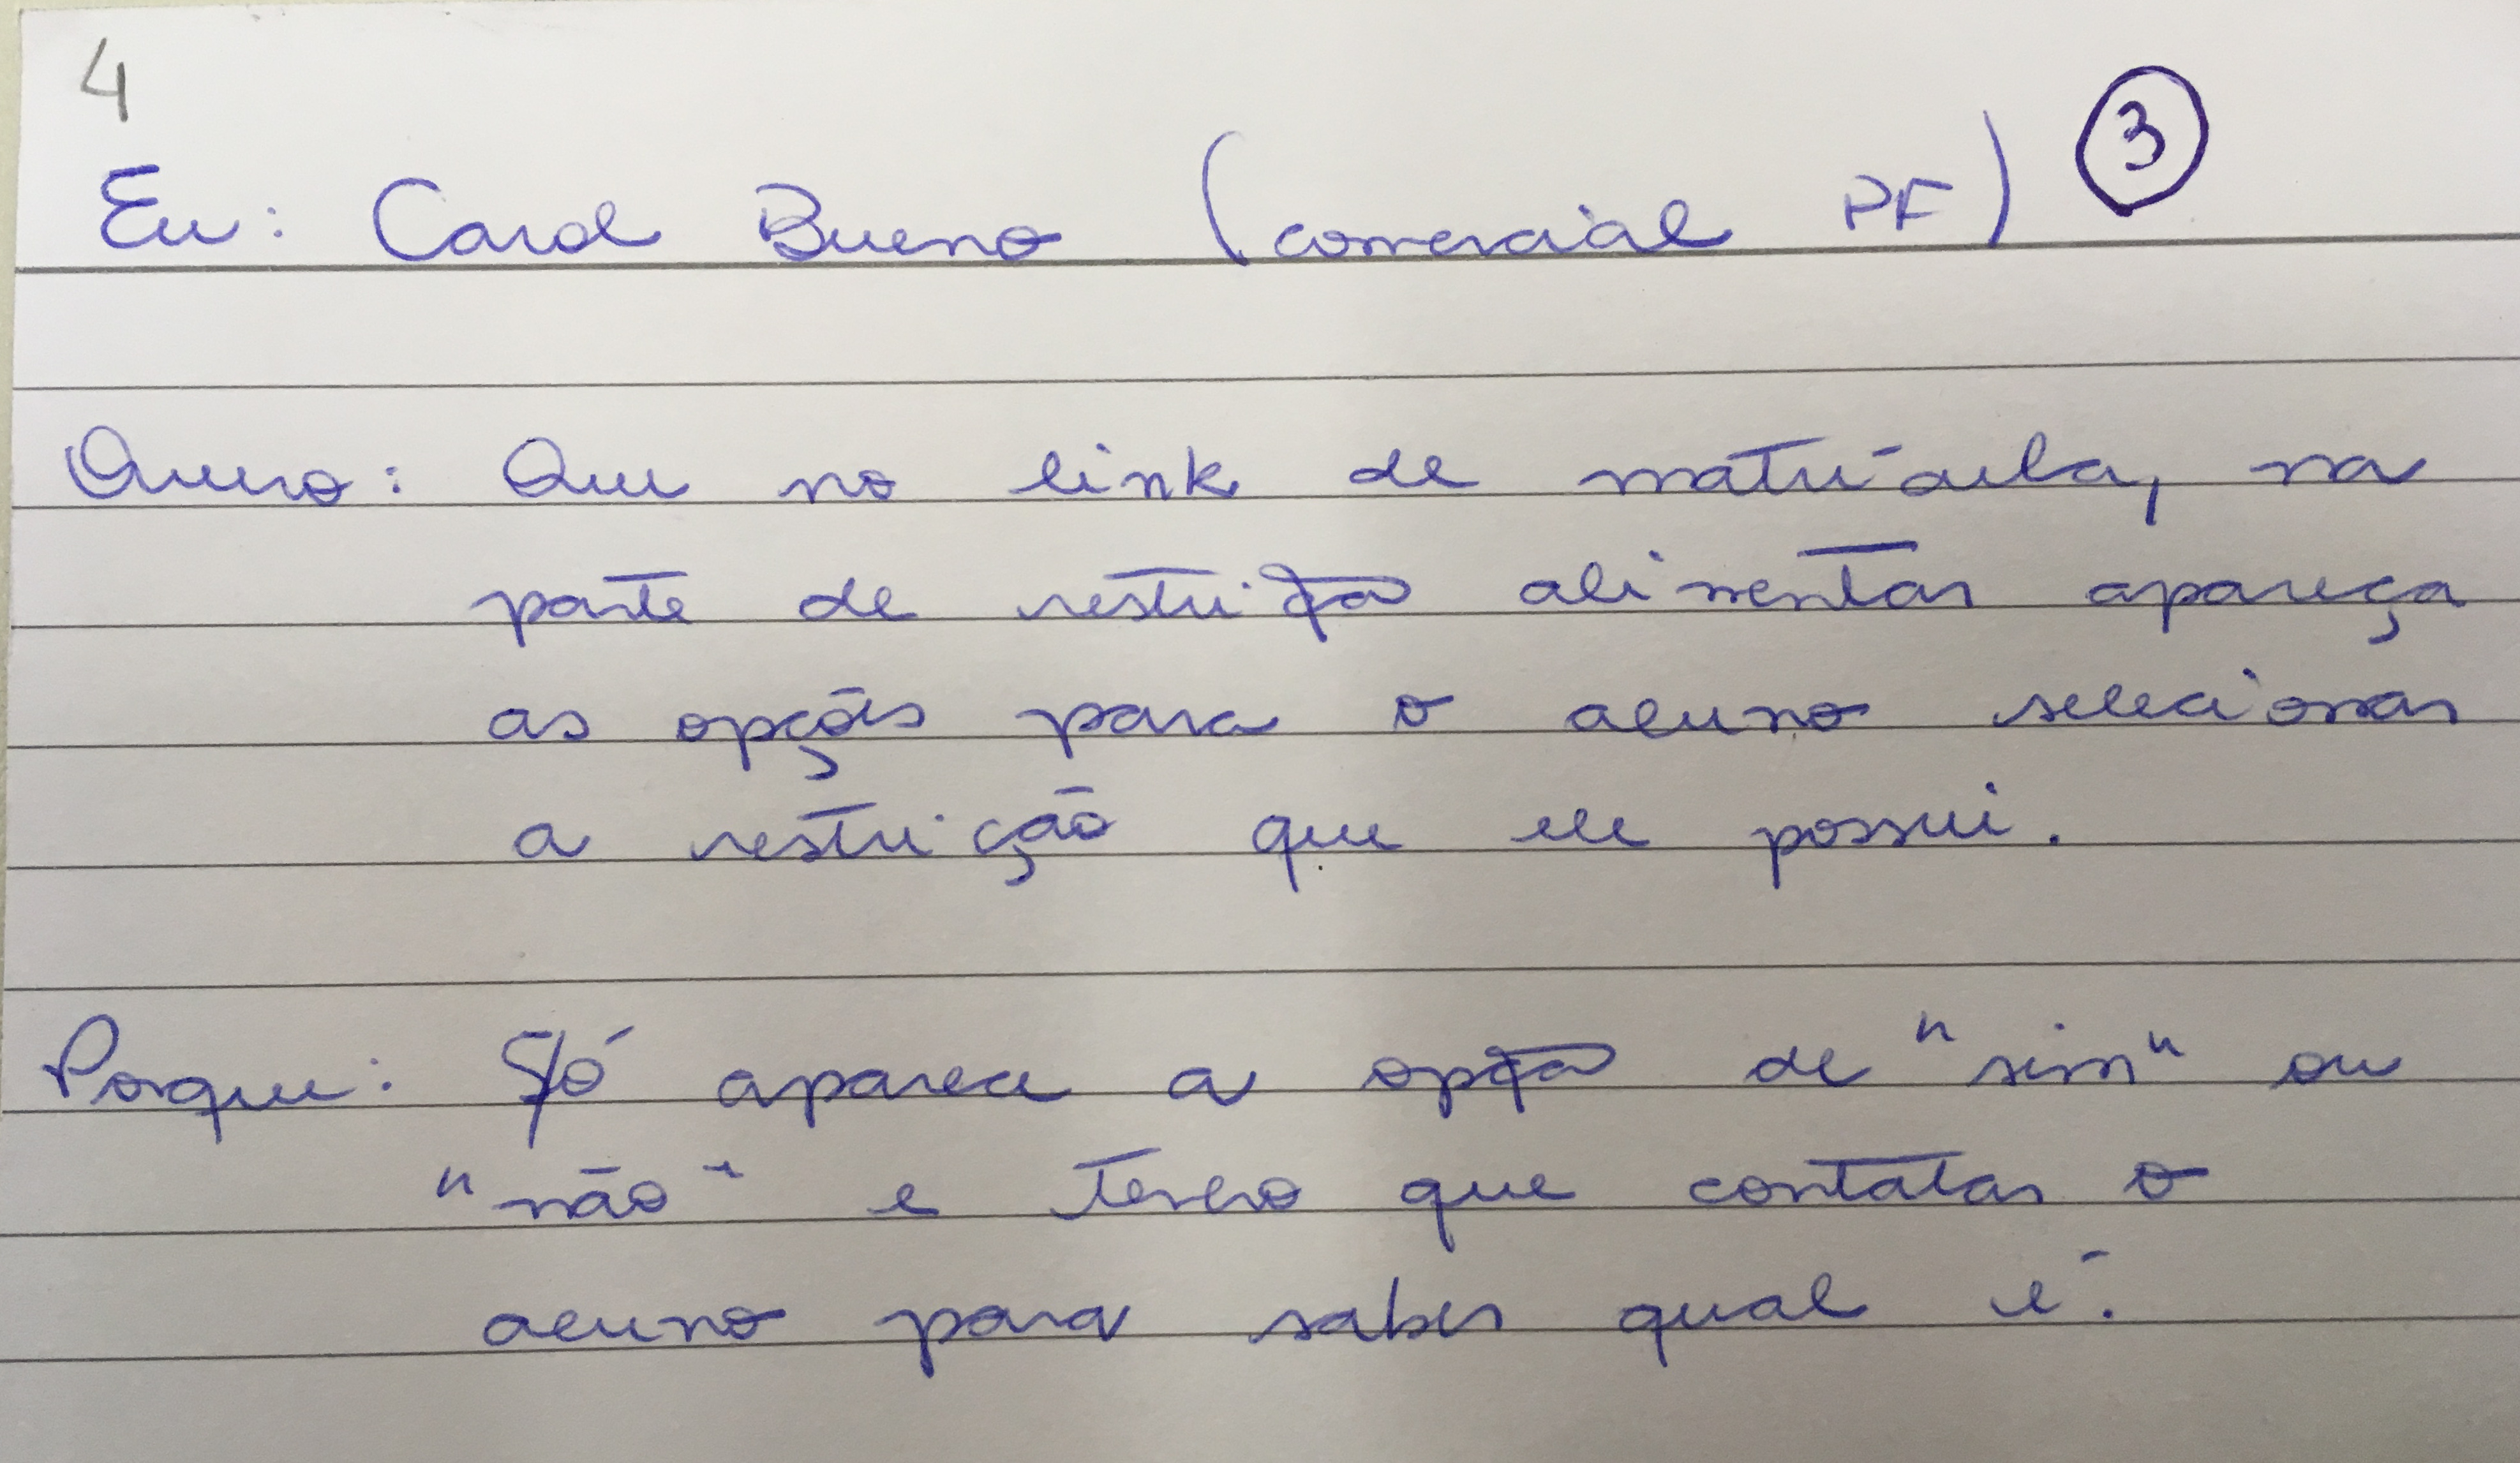 4
3
Eu: Carol Bueno (comercial PF)
Quero: Que no link de matrícula, na
parte de restrição alimentar apareça
as opções para o aluno selecionar
a restrição que ele possui.
Porque: Só aparece a opção de "sim" ou
"não" e tenho que contatar o
aluno para saber qual é.